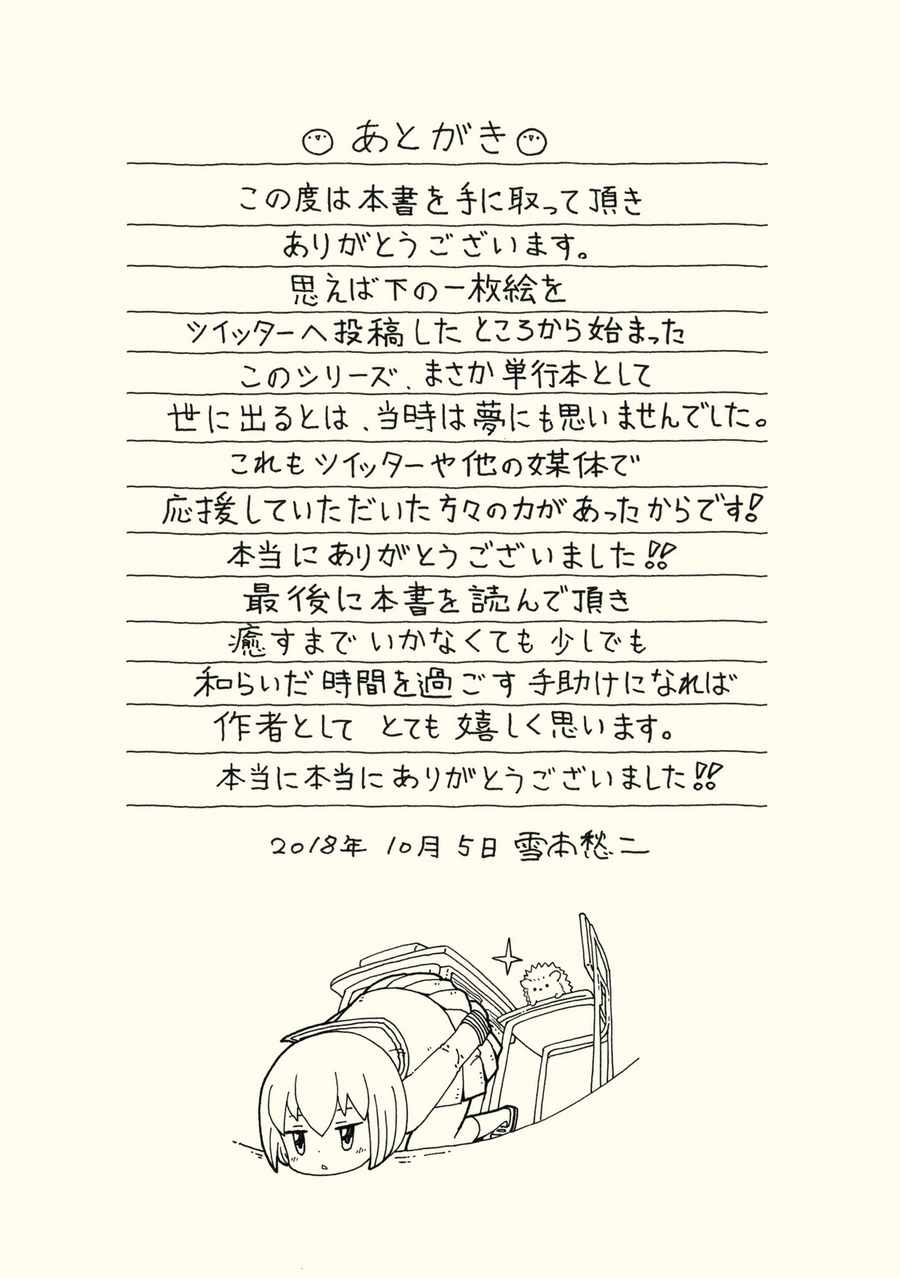 あとがき
この度は本書を手に取って頂き
ありがとうございます。
思えば下の一枚絵を
ツイッターへ投稿したところから始まった
このシリーズ、まさか単行本として
世に出るとは、当時は夢にも思いませんでした。
これもツイッターや他の媒体で
応援していただいた方々の力があったからです!
本当にありがとうございました!!
最後に本書を読んで頂き
癒すまでいかなくても少しでも
和らいだ時間を過ごす手助けになれば
作者としてとても嬉しく思います。
本当に本当にありがとうございました!!
2018年 10月 5日 雪本愁二